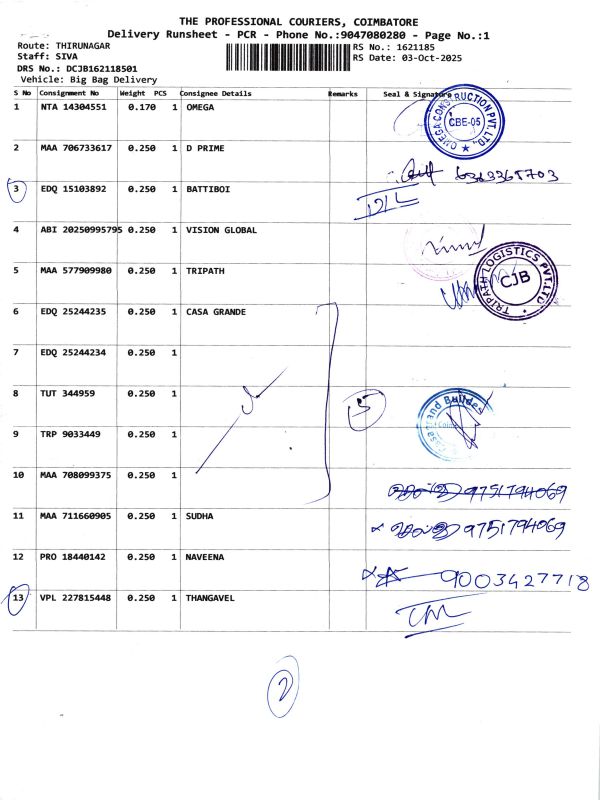 THE PROFESSIONAL COURIERS, COIMBATORE
Delivery Runsheet - PCR - Phone No.:9047080280 - Page No.:1
Route: THIRUNAGAR
RS No.: 1621185
Staff: SIVA
RS Date: 03-Oct-2025
DRS No.: DCJB162118501
Vehicle: Big Bag Delivery
S No Consignment No Weight PCS Consignee Details Remarks Seal & Signature
1 NTA 14304551 0.170 1 OMEGA
OMEGA CONSTRUCTION PVT. LTD.,
CBE-05
2 MAA 706733617 0.250 1 D PRIME
6363365703
3 EDQ 15103892 0.250 1 BATTIBOI
4 ABI 20250995795 0.250 1 VISION GLOBAL
5 MAA 577909980 0.250 1 TRIPATH
TRIPATH LOGISTICS PVT.LTD
CJB
6 EDQ 25244235 0.250 1 CASA GRANDE
7 EDQ 25244234 0.250 1
8 TUT 344959 0.250 1
5
9 TRP 9033449 0.250 1
10 MAA 708099375 0.250 1
9751794069
11 MAA 711660905 0.250 1 SUDHA
9751794069
12 PRO 18440142 0.250 1 NAVEENA
9003427718
13 VPL 227815448 0.250 1 THANGAVEL
2